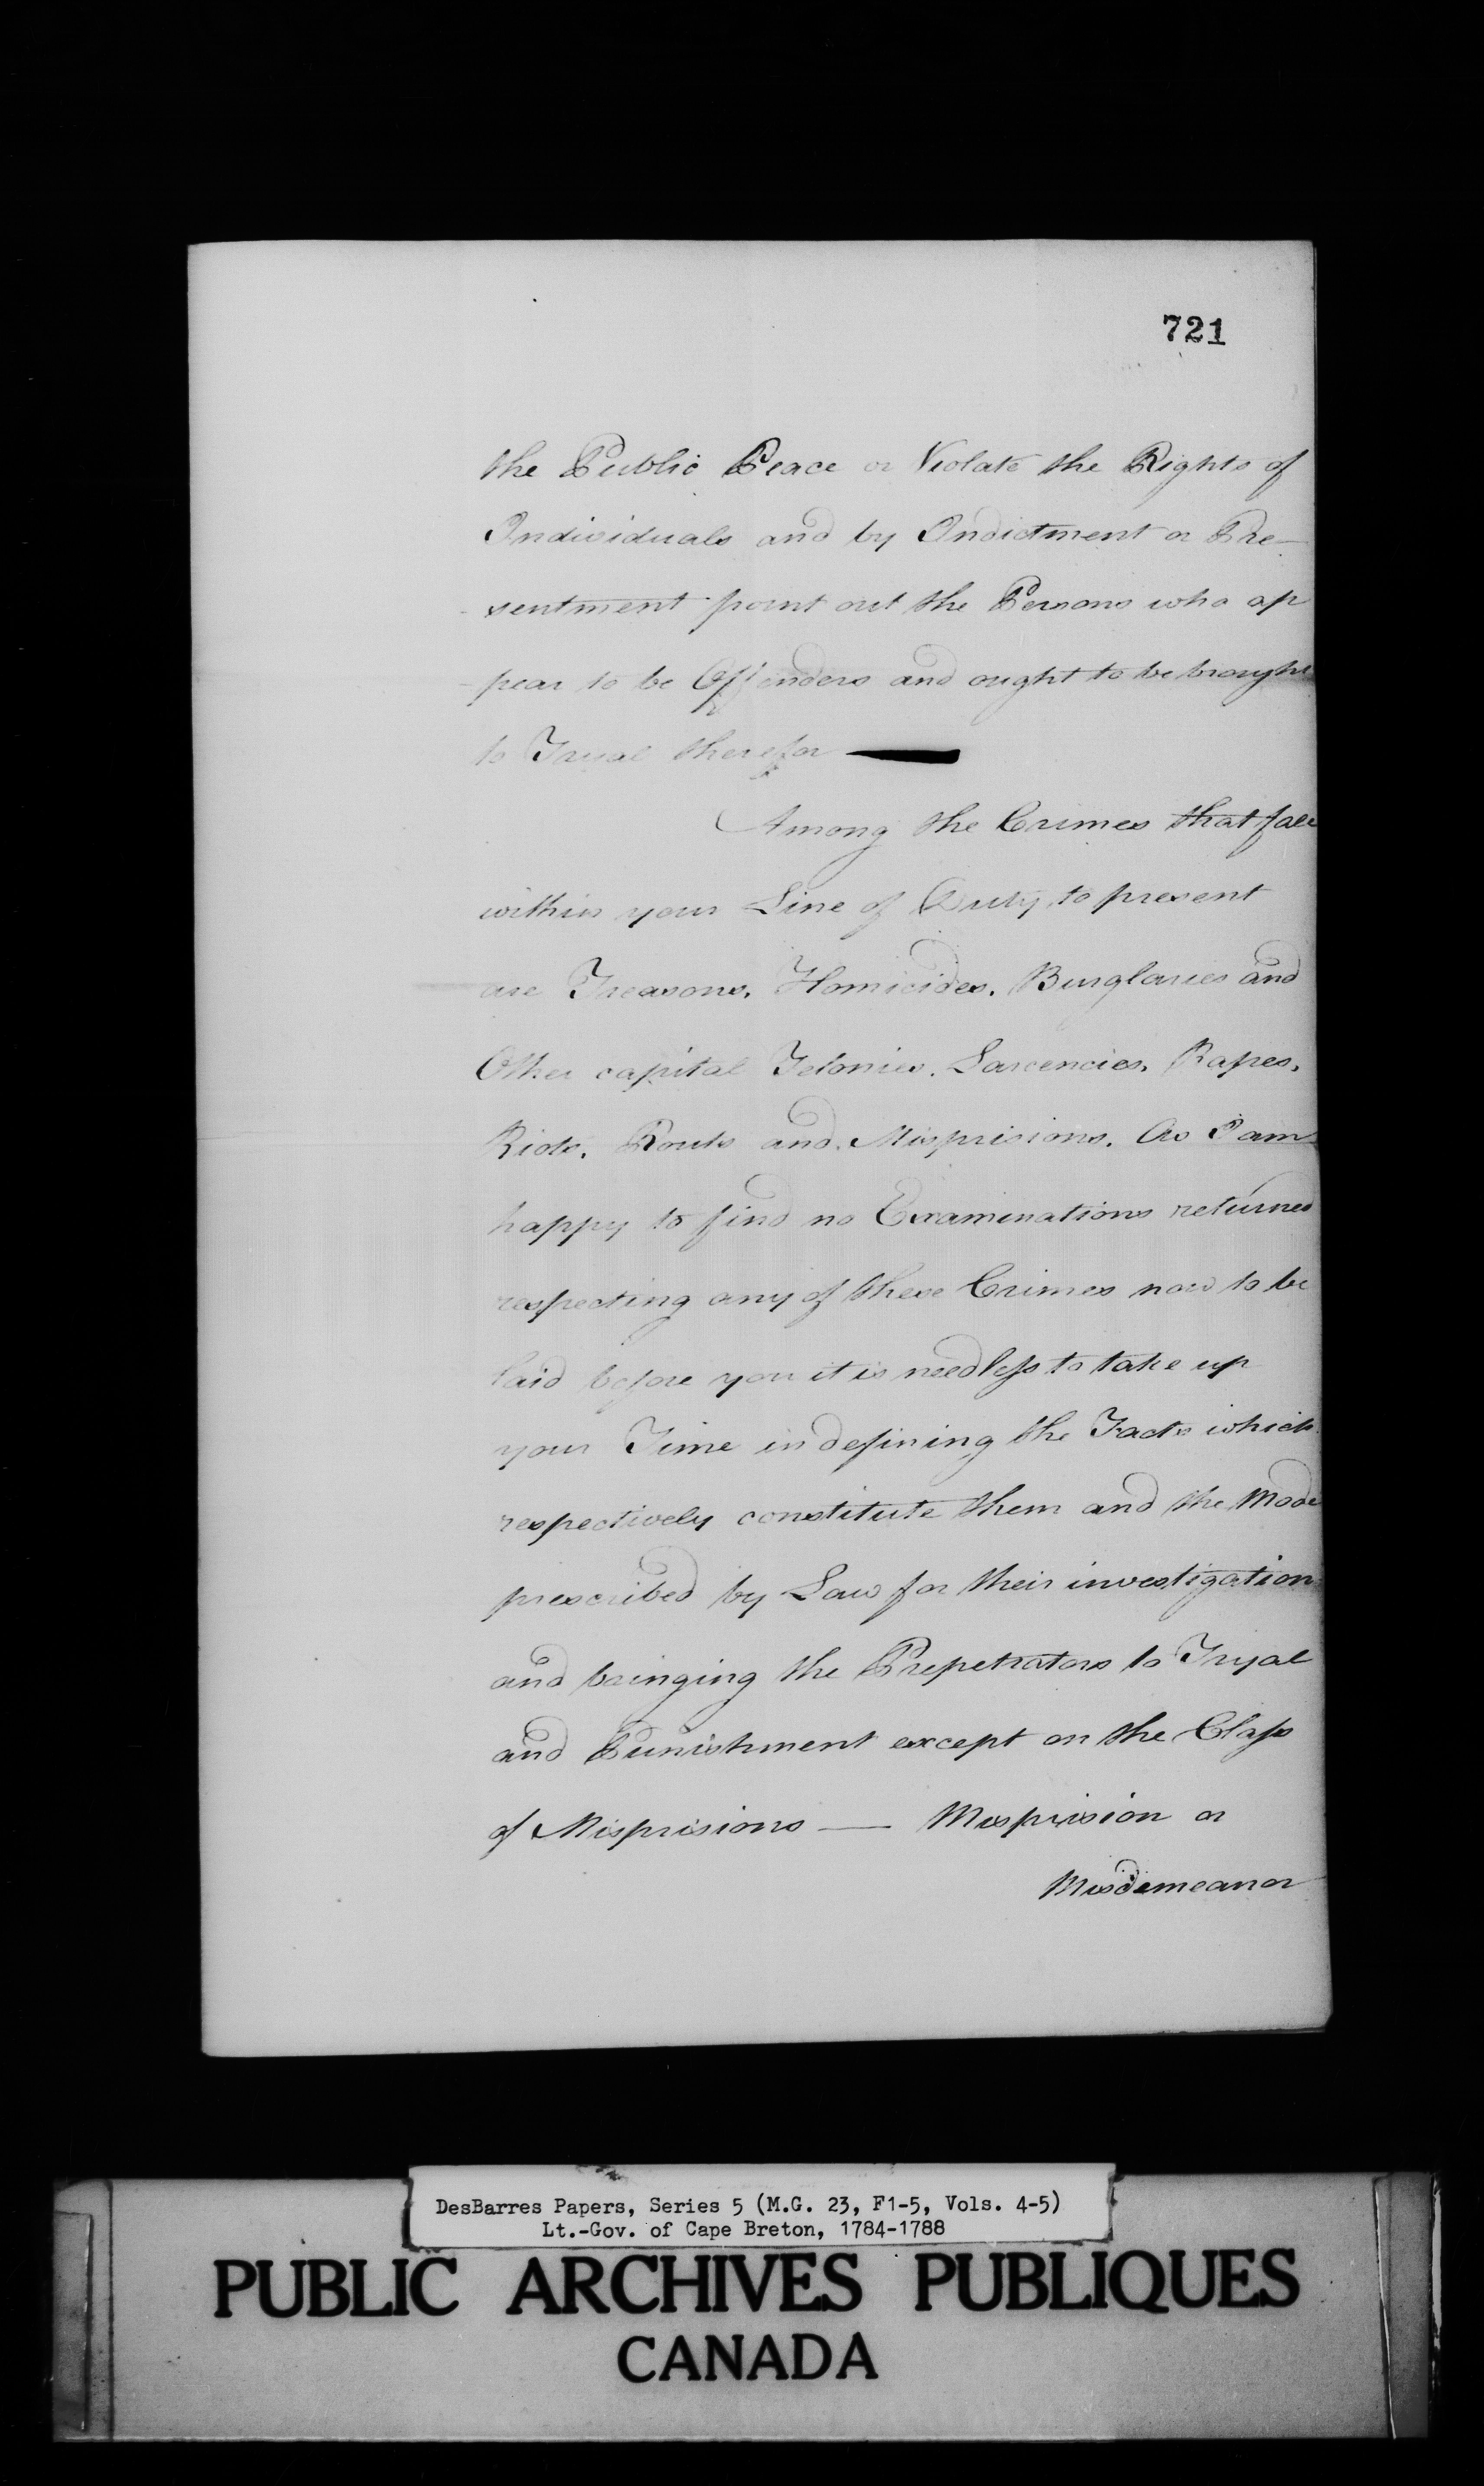 721
the Public Peace or Violate the Rights of
Individuals and by Indictment or Pre-
-sentment point out the Persons who ap
-pear to be Offenders and ought to be brought
to Tryal therefor —
Among the Crimes that fall
within your Line of Duty to present
are Treasons, Homicides, Burglaries and
Other capital Felonies, Larcencies, Rapes,
Riots, Routs and Misprisions. As I am
happy to find no Examinations returned
respecting any of these Crimes now to be
laid before you it is needless to take up
your Time in defining the Facts which
respectively constitute them and the Mode
prescribed by Law for their investigation
and bringing the Prepetrators to Tryal
and Punishment except on the Class
of Misprisions — Misprision or
Misdemeanor
DesBarres Papers, Series 5 (M.G. 23, F1-5, Vols. 4-5)
Lt.-Gov. of Cape Breton, 1784-1788
PUBLIC ARCHIVES PUBLIQUES
CANADA